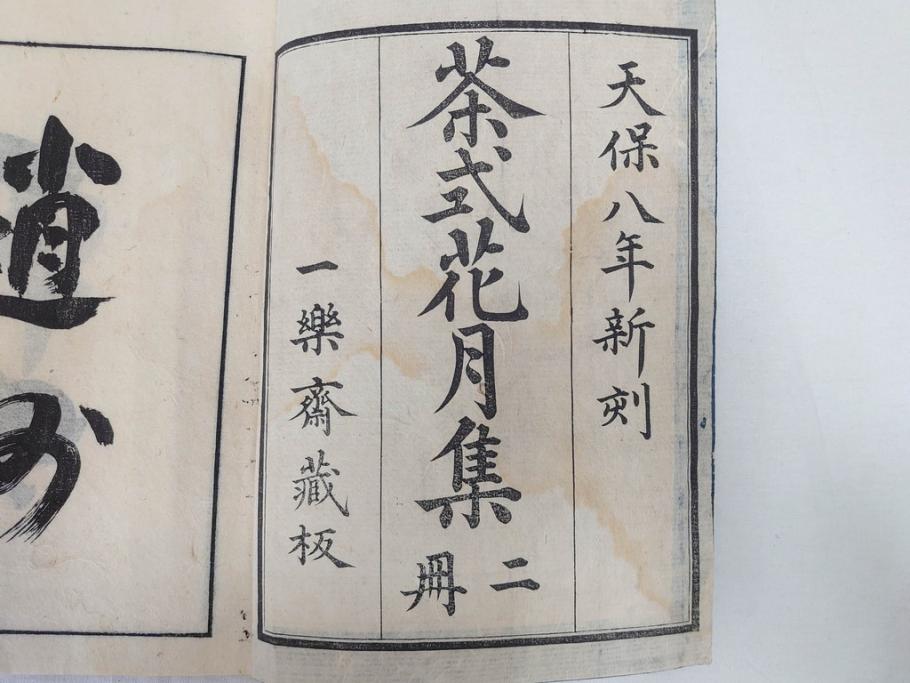 天保八年新刻
茶式花月集
二冊
一樂齋藏板